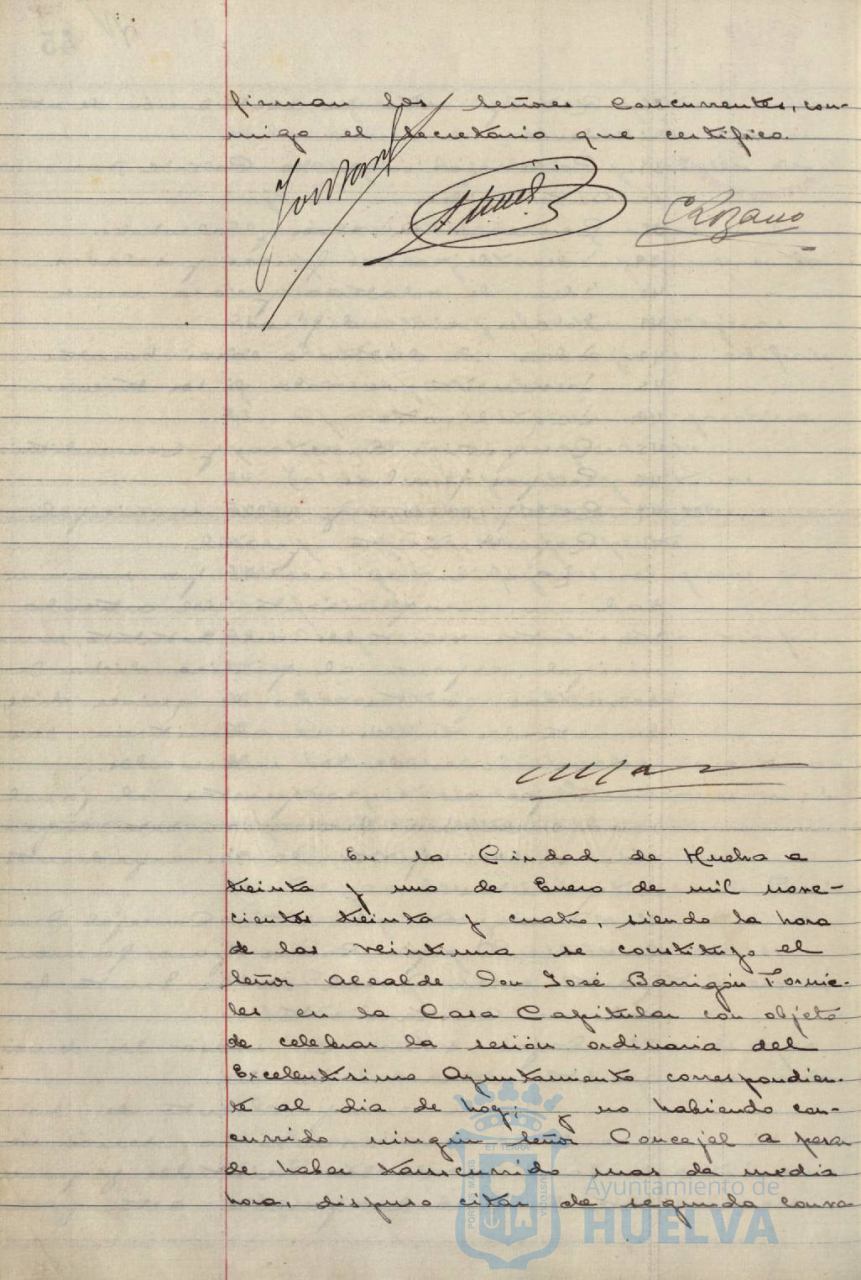 firman los señores concurrentes, con-
migo el secretario que certifico.
C Lozano
En la Ciudad de Huelva a
treinta y uno de Enero de mil nove-
cientos treinta y cuatro, siendo la hora
de las veintiuna se constituyo el
señor Alcalde Don José Barrigón Fornie-
les en la Casa Capitular con objeto
de celebrar la sesión ordinaria del
Excelentisimo Ayuntamiento correspondien-
te al dia de hoy; y no habiendo con-
currido ningún señor Concejal a pesar
de haber transcurrido mas de media
hora, dispuso citar de segunda convo
Ayuntamiento de
HUELVA